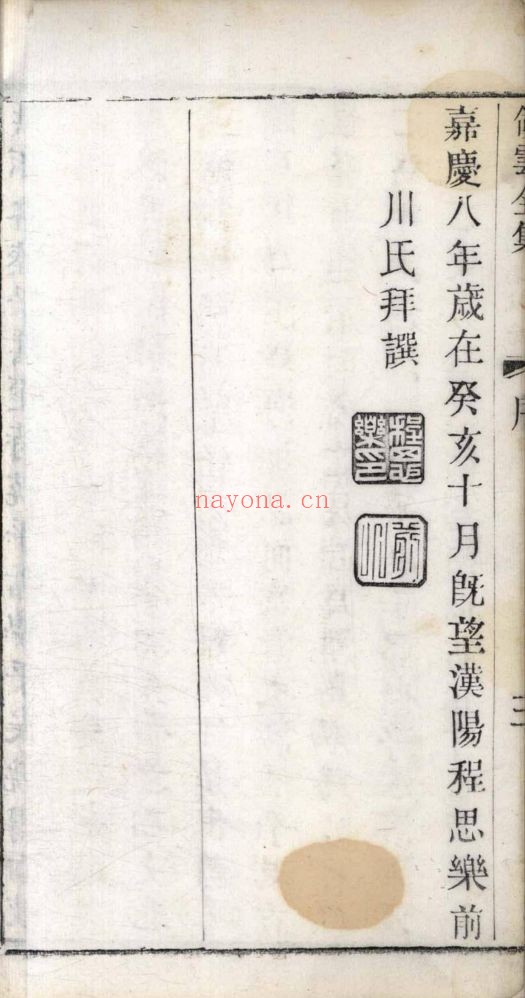 嘉慶八年歲在癸亥十月旣望漢陽程思樂前
川氏拜譔
程思樂印
前川
nayona.cn